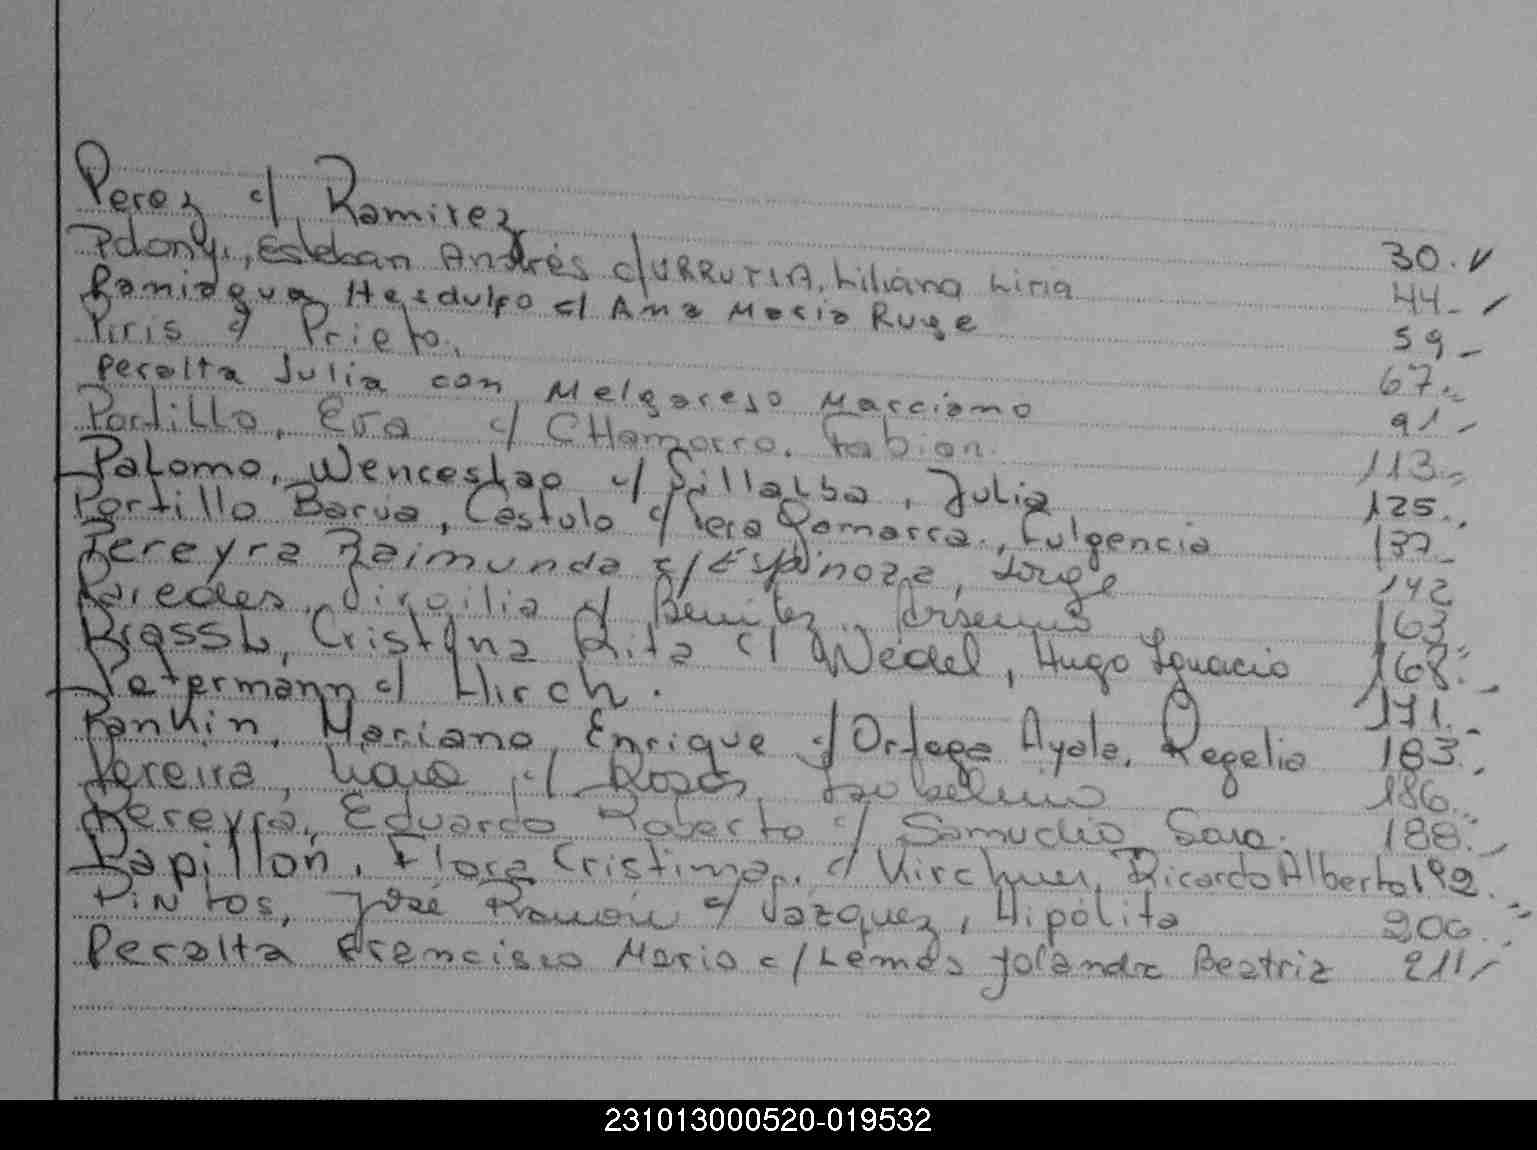 Perez c/ Ramirez 30.
Pdony, Esteban Andrés c/ URRUTIA, Liliana Liria 44-
Paniagua Hesdulfo c/ Ana Maria Ruge 59-
Piris c/ Prieto. 67.-
Peralta Julia con Melgarejo Marciano 91-
Portillo, Eva c/ CHamorro, Fabian. 113.-
Palomo, Wenceslao c/ Sillalba, Julia 125.
Portillo Barua, Castulo c/ Vera Gamarra, Fulgencia 137-
Pereyra Raimunda c/ Espinoza, Jorge 142
Paredes, Virgilia c/ Benitez, Arsenio 163
Brassb, Cristina Rita c/ Wedel, Hugo Ignacio 168.-
Petermann c/ Hirch. 171.-
Rankin, Mariano, Enrique c/ Ortega Ayala, Rogelia 183.-
Pereira, c/ Rosas, Isabelino 186.-
Pereyra, Eduardo Roberto c/ Samudio Sara. 188.-
Papillon, Flora Cristina, c/ Kirchner, Ricardo Alberto 192.-
Pintos, José Ramón c/ Vazquez, Hipólita 206.-
Peralta Francisco Mario c/ Lemos Yolanda Beatriz 211-
231013000520-019532